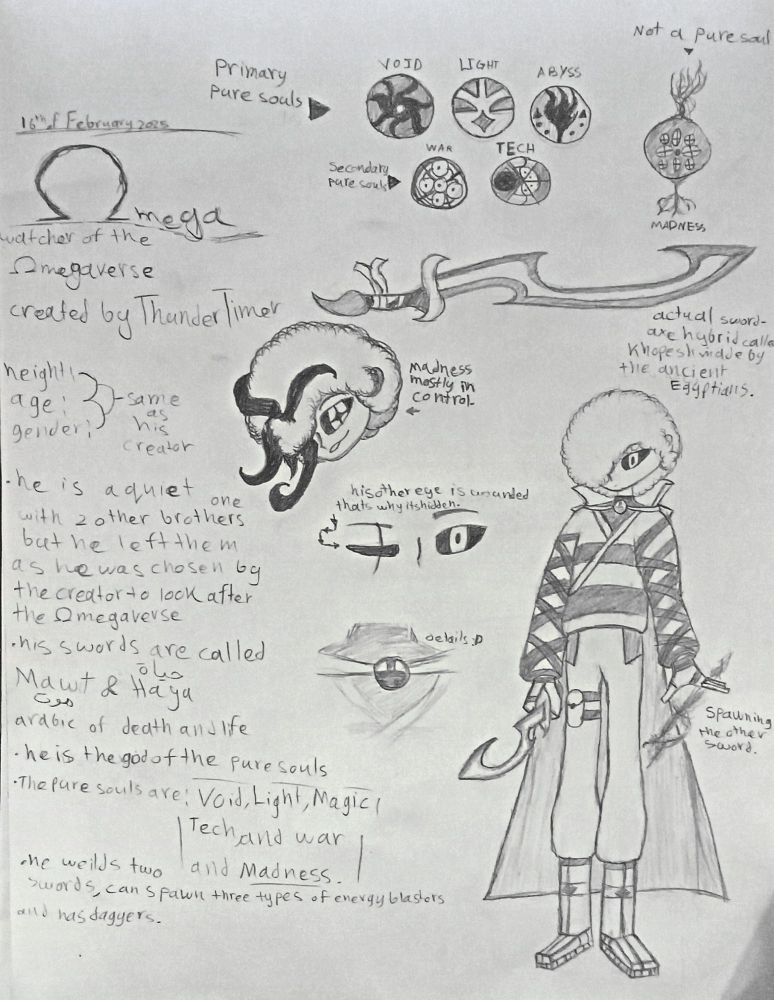 16th of February 2025
Ωmega
watcher of the
Ωmegaverse
created by ThunderTimer
height:
age:
gender:
same
as
his
creator
• he is a quiet one
with 2 other brothers
but he left them
as he was chosen by
the creator to look after
the Ωmegaverse
• his swords are called
حياة
Mawt & Haya
موت
arabic of death and life
• he is the god of the pure souls
• The pure souls are: Void, Light, Magic,
Tech, and war
and Madness.
• he weilds two
swords, can spawn three types of energy blasters
and has dagyers.
Primary
pure souls
VOID
LIGHT
ABYSS
Secondary
pure souls
WAR
TECH
Not a pure soul
MADNESS
actual sword-
axe hybrid calle
Khopesh made by
the ancient
Egyptians.
madness
mostly in
control.
his other eye is wounded
thats why its hidden.
details :D
Spawning
the other
sword.